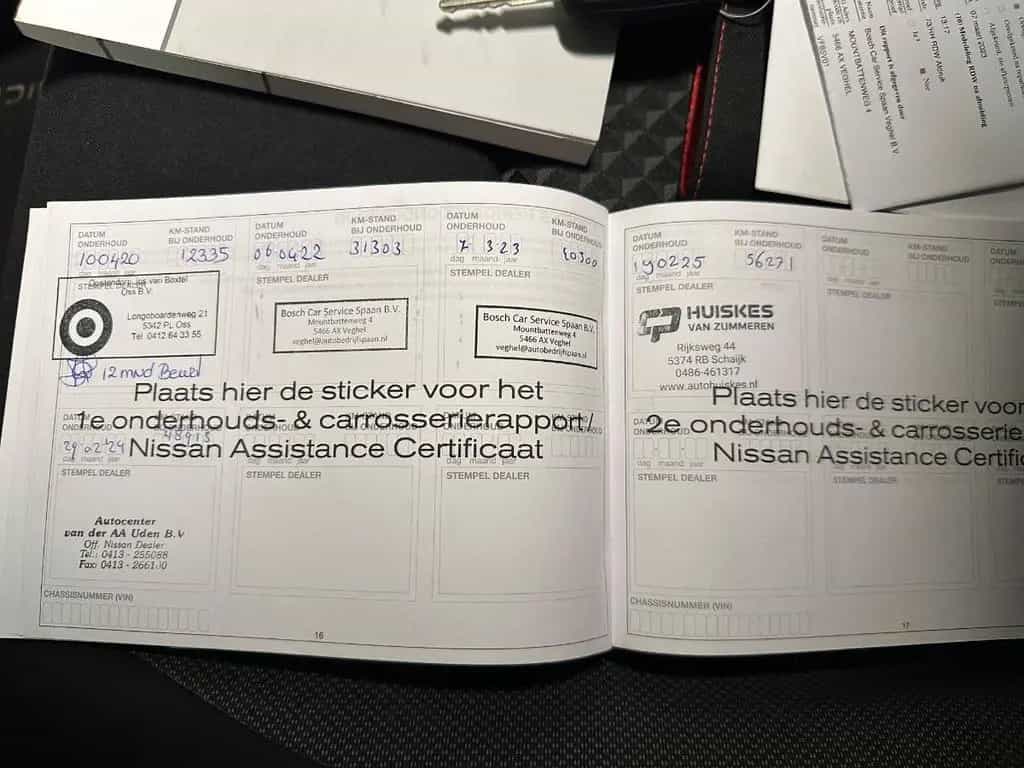 07 maart 2023
13:17
Bosch Car Service Spaan Veghel B.V.
MOUNTBATTENWEG 4
5466 AX VEGHEL
DATUM
ONDERHOUD
KM-STAND
BIJ ONDERHOUD
100420
12335
dag maand jaar
STEMPEL DEALER
Oss B.V.
Longobardenweg 21
5342 PL Oss
Tel 0412 64 33 55
12 mnd Beurt
DATUM
ONDERHOUD
KM-STAND
BIJ ONDERHOUD
060422
31303
dag maand jaar
STEMPEL DEALER
Bosch Car Service Spaan B.V.
Mountbattenweg 4
5466 AX Veghel
veghel@autobedrijfspaan.nl
DATUM
ONDERHOUD
KM-STAND
BIJ ONDERHOUD
7 3 23
40300
dag maand jaar
STEMPEL DEALER
Bosch Car Service Spaan B.V.
Mountbattenweg 4
5466 AX Veghel
veghel@autobedrijfspaan.nl
Plaats hier de sticker voor het
1e onderhouds- & carrosserierapport/
Nissan Assistance Certificaat
29 02 24
48915
dag maand jaar
STEMPEL DEALER
STEMPEL DEALER
STEMPEL DEALER
Autocenter
van der AA Uden B.V
Off. Nissan Dealer
Tel.: 0413 - 255088
Fax: 0413 - 266100
CHASSISNUMMER (VIN)
16
DATUM
ONDERHOUD
KM-STAND
BIJ ONDERHOUD
190225
56271
dag maand jaar
STEMPEL DEALER
HUISKES
VAN ZUMMEREN
Rijksweg 44
5374 RB Schaijk
0486-461317
www.autohuiskes.nl
DATUM
ONDERHOUD
KM-STAND
BIJ ONDERHOUD
STEMPEL DEALER
Plaats hier de sticker voor
2e onderhouds- & carrosserie
Nissan Assistance Certific
STEMPEL DEALER
STEMPEL DEALER
CHASSISNUMMER (VIN)
17